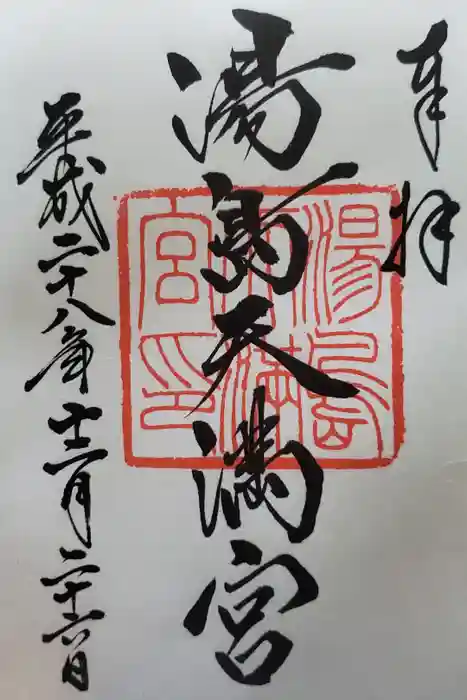 奉拝
湯島天満宮
湯島
天満
宮印
平成二十八年十二月二十六日